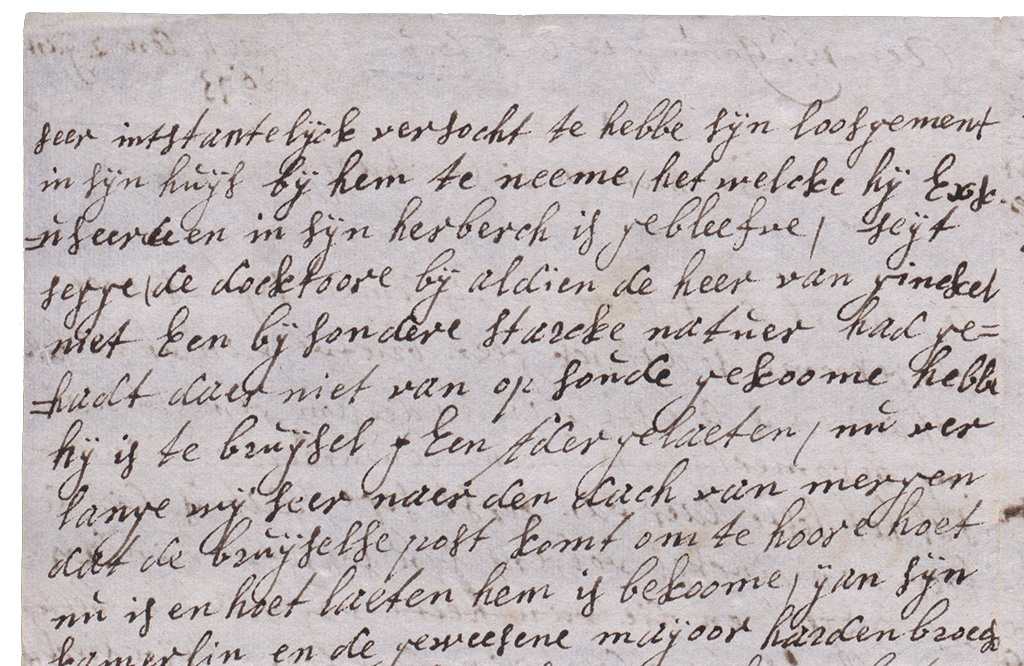 seer intstantelijck versocht te hebbe sijn loosgement
in sijn huijs bij hem te neeme, het welcke hij Exk-
=useerde en in sijn herberch is gebleefve, seijt
segge, de docktoore bij aldien de heer van ginckel
niet Een bijsondere starcke natuer had ge=
=hadt daer niet van op soude gekoome hebbe
hij is te bruijsel Een ader gelaeten, nu ver
lange mij seer naer den dach van mergen
dat de bruijselse post komt om te hoore hoet
nu is en hoet laeten hem is bekoome, ijan sijn
kamerlin en de geweesene maijoor hardenbroeck